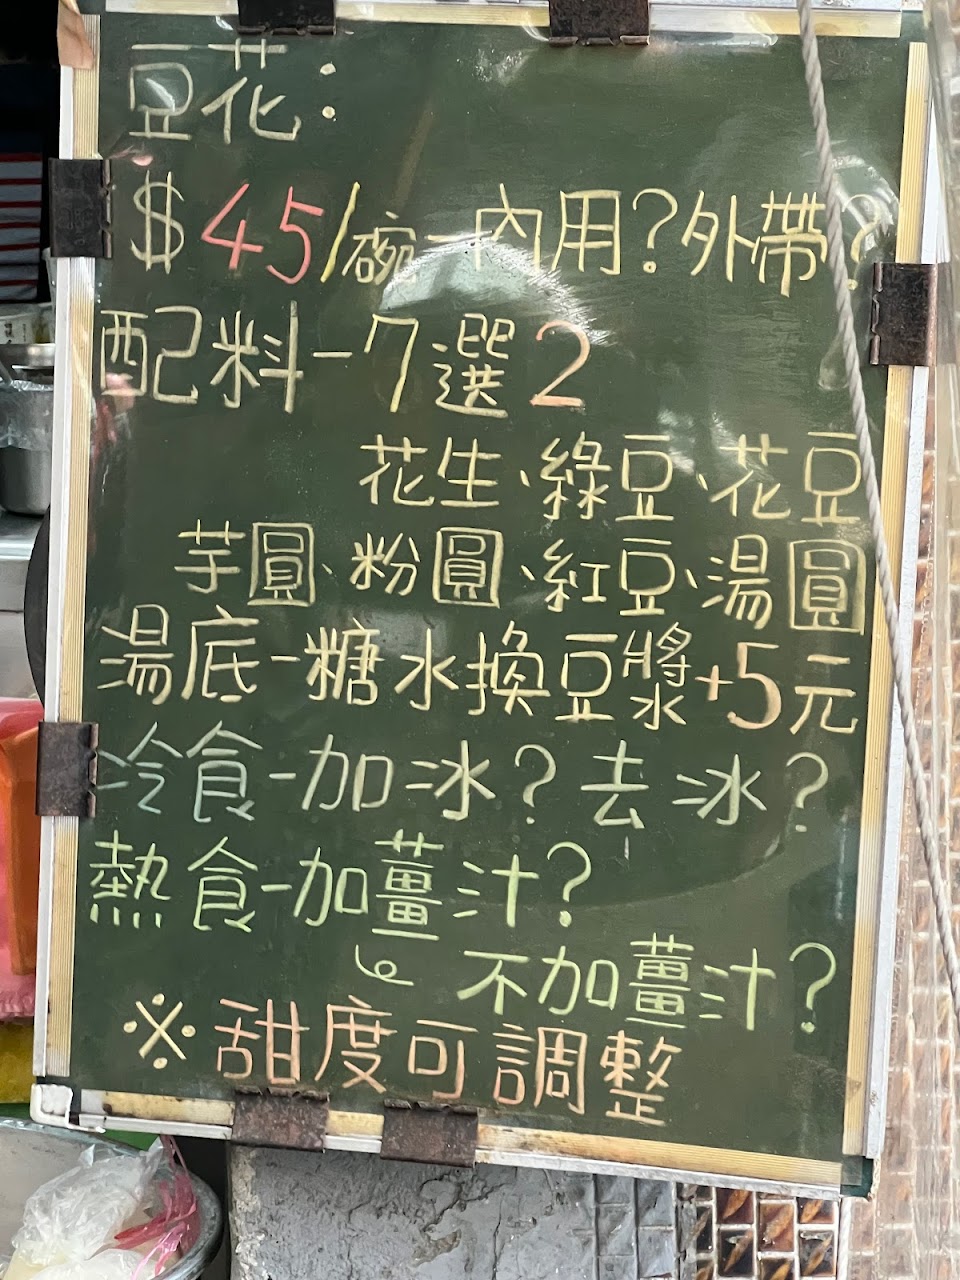 豆花：
$45/碗-內用？外帶？
配料-7選2
花生、綠豆、花豆
芋圓、粉圓、紅豆、湯圓
湯底-糖水換豆漿+5元
冷食-加冰？去冰？
熱食-加薑汁？
不加薑汁？
※甜度可調整